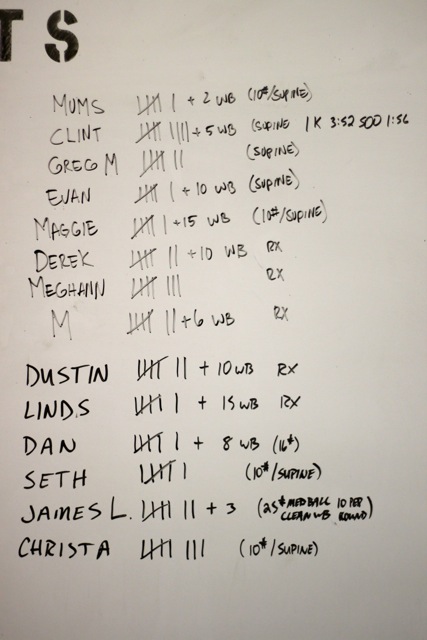 TS
MUMS 𝍸 | + 2 WB (10#/SUPINE)
CLINT 𝍸 |||| + 5 WB (SUPINE 1K 3:52 500 1:56
GREG M 𝍸 || (SUPINE)
EVAN 𝍸 | + 10 WB (SUPINE)
MAGGIE 𝍸 | + 15 WB (10#/SUPINE)
DEREK 𝍸 || + 10 WB RX
MEGHANN 𝍸 ||| RX
M 𝍸 || + 6 WB RX
DUSTIN 𝍸 || + 10 WB RX
LINDS 𝍸 | + 15 WB RX
DAN 𝍸 | + 8 WB (16#)
SETH 𝍸 | (10#/SUPINE)
JAMES L. 𝍸 || + 3 (25# MED BALL 10 PER
CLEAN WB ROUND)
CHRISTA 𝍸 ||| (10#/SUPINE)